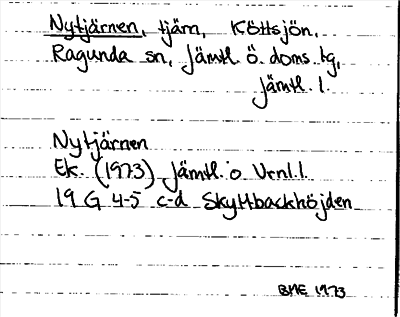 Nytjärnen, tjärn, Köttsjön,
Ragunda sn, Jämtl. Ö. doms. tg,
Jämtl. l.
Nytjärnen
Ek. (1973) Jämtl. o Vrnl. l.
19 G 4-5 c-d Skyttbackhöjden
BME 1973